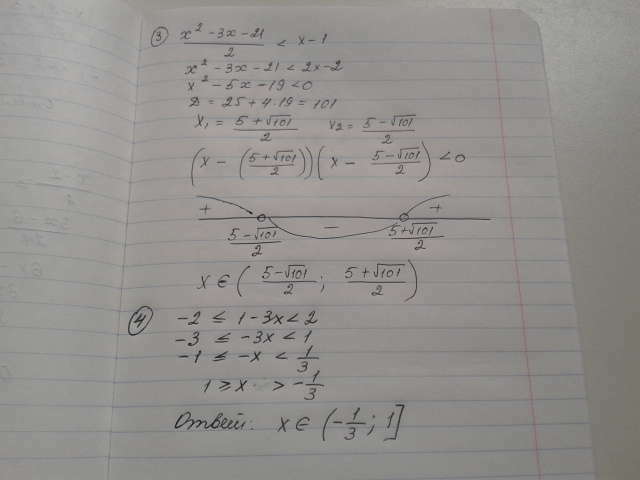 ③ (x² - 3x - 21)/2 < x - 1
x² - 3x - 21 < 2x - 2
x² - 5x - 19 < 0
D = 25 + 4·19 = 101
x₁ = (5 + √101)/2 x₂ = (5 - √101)/2
(x - ((5 + √101)/2))(x - (5 - √101)/2) < 0
+ - +
(5 - √101)/2 (5 + √101)/2
x ∈ ((5 - √101)/2 ; (5 + √101)/2)
④ -2 ≤ 1 - 3x < 2
-3 ≤ -3x < 1
-1 ≤ -x < 1/3
1 ≥ x > -1/3
Ответ: x ∈ (-1/3 ; 1]